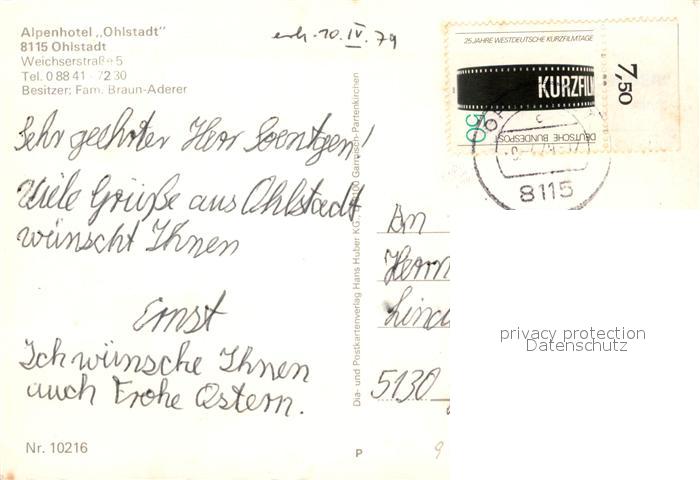 Alpenhotel „Ohlstadt"
8115 Ohlstadt
Weichserstraße 5
Tel. 0 88 41 - 72 30
Besitzer: Fam. Braun-Aderer
erh. 10. IV. 79
25 JAHRE WESTDEUTSCHE KURZFILMTAGE
KURZFILM
50
DEUTSCHE BUNDESPOST
7,50
8115
Sehr geehrter Herr Soentgen!
Viele Grüße aus Ohlstadt
wünscht Ihnen
Ernst
Ich wünsche Ihnen
auch Frohe Ostern.
Nr. 10216
Dia- und Postkartenverlag Hans Huber KG, 8100 Garmisch-Partenkirchen
P
An
Herrn
5130
9
privacy protection
Datenschutz